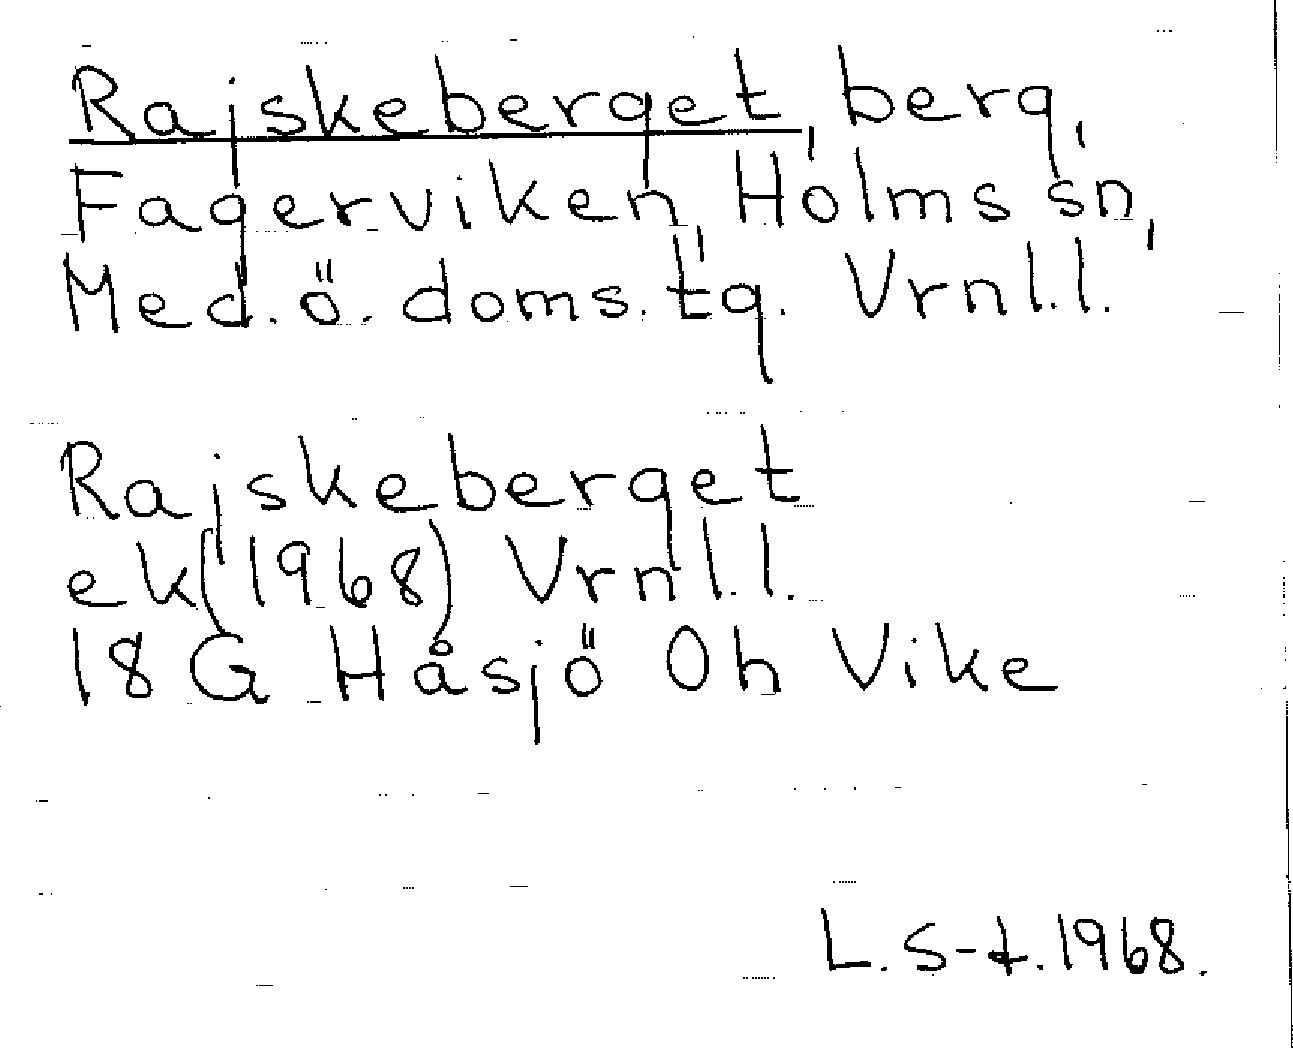 Rajskeberget, berg,
Fagerviken, Holms sn,
Med.ö.doms.tg. Vrnl.l.
Rajskeberget
ek(1968) Vrnl.l.
18G Håsjö Oh Vike
L.S-t.1968.